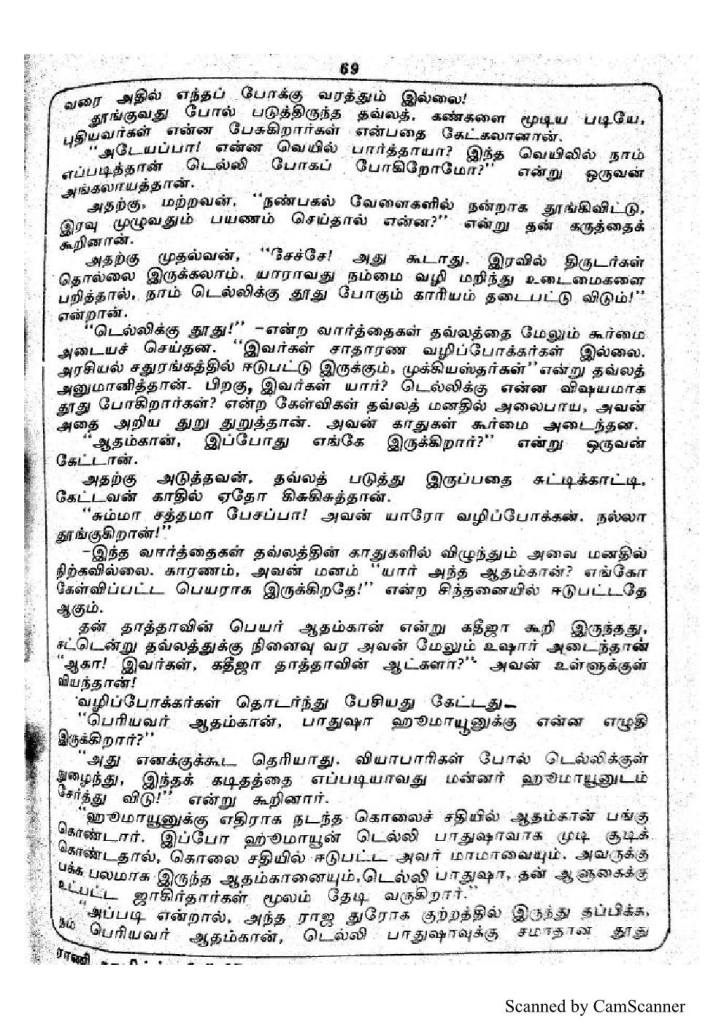 69
வரை அதில் எந்தப் போக்கு வரத்தும் இல்லை!
தூங்குவது போல் படுத்திருந்த தவ்லத், கண்களை மூடிய படியே,
புதியவர்கள் என்ன பேசுகிறார்கள் என்பதை கேட்கலானான்.
"அடேயப்பா! என்ன வெயில் பார்த்தாயா? இந்த வெயிலில் நாம்
எப்படித்தான் டெல்லி போகப் போகிறோமோ?" என்று ஒருவன்
அங்கலாயத்தான்.
அதற்கு, மற்றவன், "நண்பகல் வேளைகளில் நன்றாக தூங்கிவிட்டு,
இரவு முழுவதும் பயணம் செய்தால் என்ன?" என்று தன் கருத்தைக்
கூறினான்.
அதற்கு முதல்வன், "சேச்சே! அது கூடாது. இரவில் திருடர்கள்
தொல்லை இருக்கலாம். யாராவது நம்மை வழி மறிந்து உடைமைகளை
பறித்தால், நாம் டெல்லிக்கு தூது போகும் காரியம் தடைபட்டு விடும்!"
என்றான்.
"டெல்லிக்கு தூது!" -என்ற வார்த்தைகள் தவ்லத்தை மேலும் கூர்மை
அடையச் செய்தன. "இவர்கள் சாதாரண வழிப்போக்கர்கள் இல்லை.
அரசியல் சதுரங்கத்தில் ஈடுபட்டு இருக்கும், முக்கியஸ்தர்கள்" என்று தவ்லத்
அனுமானித்தான். பிறகு, இவர்கள் யார்? டெல்லிக்கு என்ன விஷயமாக
தூது போகிறார்கள்? என்ற கேள்விகள் தவ்லத் மனதில் அலைபாய, அவன்
அதை அறிய துறு துறுத்தான். அவன் காதுகள் கூர்மை அடைந்தன.
"ஆதம்கான், இப்போது எங்கே இருக்கிறார்?" என்று ஒருவன்
கேட்டான்.
அதற்கு அடுத்தவன், தவ்லத் படுத்து இருப்பதை சுட்டிக்காட்டி,
கேட்டவன் காதில் ஏதோ கிசுகிசுத்தான்.
"சும்மா சத்தமா பேசப்பா! அவன் யாரோ வழிப்போக்கன். நல்லா
தூங்குகிறான்!"
-இந்த வார்த்தைகள் தவ்லத்தின் காதுகளில் விழுந்தும் அவை மனதில்
நிற்கவில்லை. காரணம், அவன் மனம் "யார் அந்த ஆதம்கான்? எங்கோ
கேள்விப்பட்ட பெயராக இருக்கிறதே!" என்ற சிந்தனையில் ஈடுபட்டதே
ஆகும்.
தன் தாத்தாவின் பெயர் ஆதம்கான் என்று கதீஜா கூறி இருந்தது,
சட்டென்று தவ்லத்துக்கு நினைவு வர அவன் மேலும் உஷார் அடைந்தான்
"ஆகா! இவர்கள், கதீஜா தாத்தாவின் ஆட்களா?" அவன் உள்ளுக்குள்
வியந்தான்!
வழிப்போக்கர்கள் தொடர்ந்து பேசியது கேட்டது_
"பெரியவர் ஆதம்கான், பாதுஷா ஹூமாயூனுக்கு என்ன எழுதி
இருக்கிறார்?"
"அது எனக்குக்கூட தெரியாது. வியாபாரிகள் போல் டெல்லிக்குள்
நுழைந்து, இந்தக் கடிதத்தை எப்படியாவது மன்னர் ஹூமாயூனுடம்
சேர்த்து விடு!" என்று கூறினார்.
"ஹூமாயூனுக்கு எதிராக நடந்த கொலைச் சதியில் ஆதம்கான் பங்கு
கொண்டார். இப்போ ஹூமாயூன் டெல்லி பாதுஷாவாக முடி சூடிக்
கொண்டதால், கொலை சதியில் ஈடுபட்ட அவர் மாமாவையும். அவருக்கு
பக்க பலமாக இருந்த ஆதம்கானையும், டெல்லி பாதுஷா, தன் ஆளுகைக்கு
உட்பட்ட ஜாகிர்தார்கள் மூலம் தேடி வருகிறார்."
"அப்படி என்றால், அந்த ராஜ துரோக குற்றத்தில் இருந்து தப்பிக்க,
நம் பெரியவர் ஆதம்கான், டெல்லி பாதுஷாவுக்கு சமாதான தூது
ராணி
Scanned by CamScanner